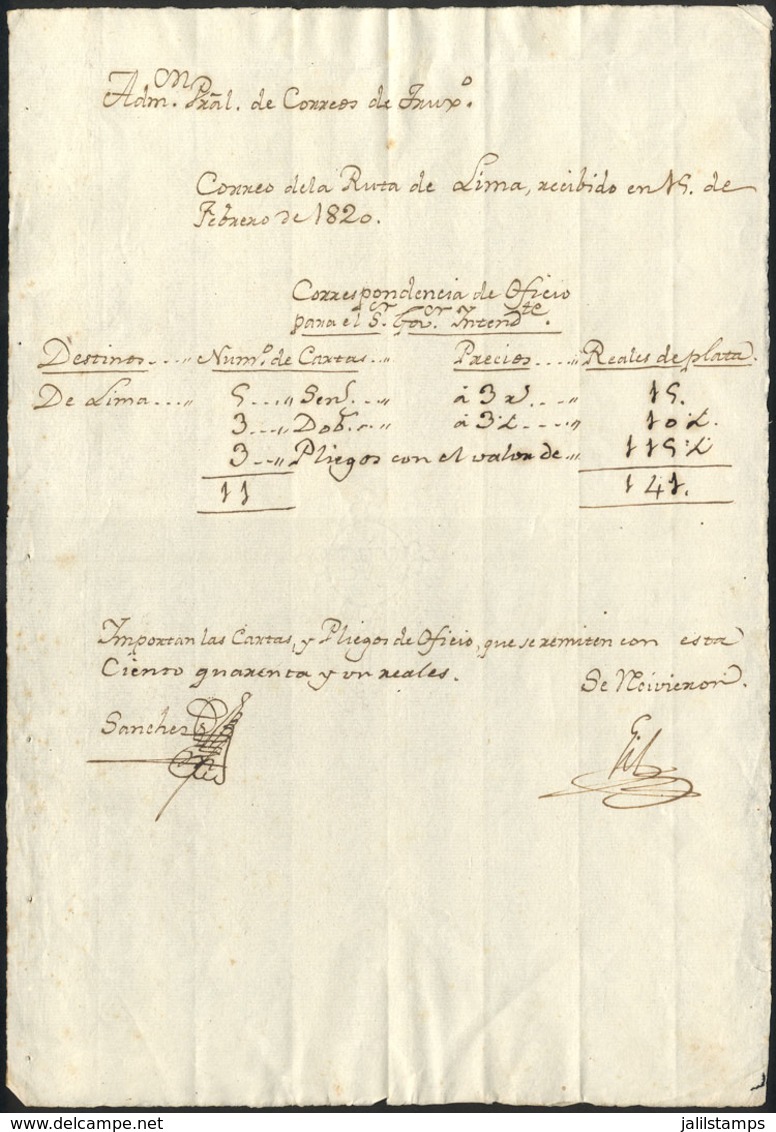 Adm.ⁿ Prãl. de Correos de Trux.º
Correo dela Ruta de Lima, recibido en 15. de
Febrero de 1820.
Correspondencia de Oficio
para el S.r Gov.or Yntend.te
Destinos....,, Num.º de Cartas..,, Precios....,, Reales de plata.
De Lima...,, 5...,, Senz...,, á 3 rs....,, 15.
3...,, Dob.s..,, á 3½...,, 10½.
3...,, Pliegos con el valor de..,, 115½
11 141.
Importan las Cartas, y Pliegos de Oficio, que se remiten con esta
Ciento quarenta y un reales.
Se Reivieron.
Sanchez
Gil
jalilstamps